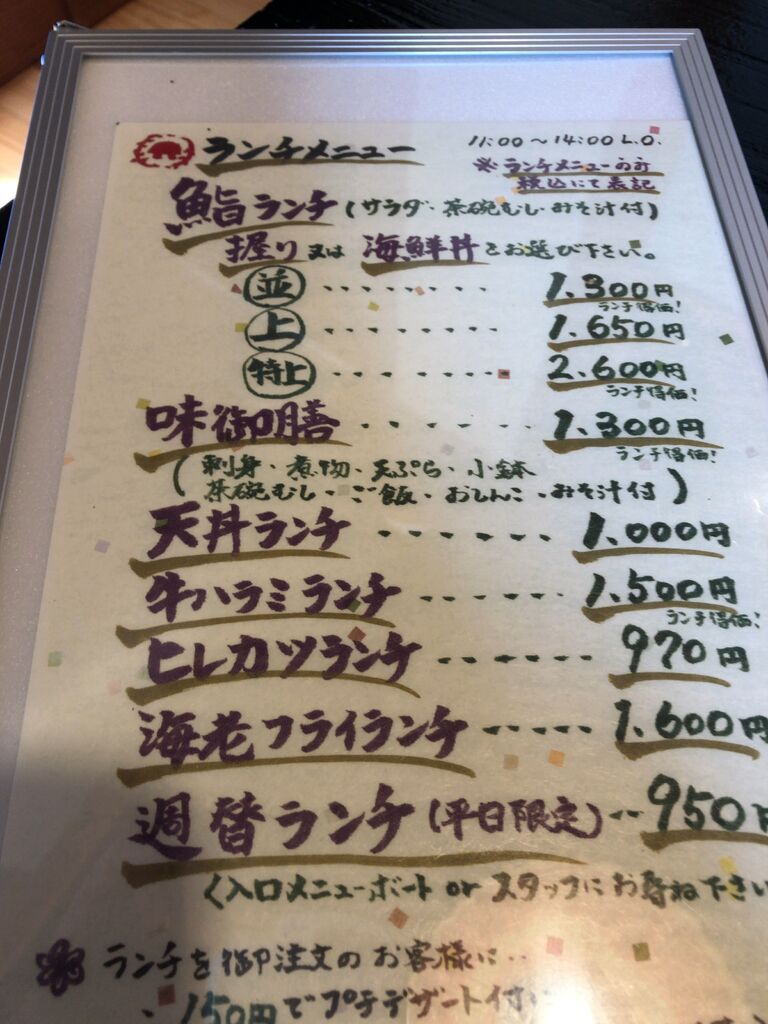 ランチメニュー 11:00〜14:00 L.O.
※ランチメニューのみ
税込にて表記
鮨ランチ(サラダ・茶碗むし・みそ汁付)
握り又は海鮮丼をお選び下さい。
並 1.300円
ランチ得価!
上 1.650円
特上 2.600円
ランチ得価!
味御膳 1.300円
ランチ得価!
(刺身・煮物・天ぷら・小鉢
茶碗むし・ご飯・おしんこ・みそ汁付)
天丼ランチ 1.000円
牛ハラミランチ 1.500円
ランチ得価!
ヒレカツランチ 970円
海老フライランチ 1.600円
週替ランチ(平日限定) 950円
〈入口メニューボード or スタッフにお尋ね下さい
ランチを御注文のお客様に‥
、150円でプチデザート付